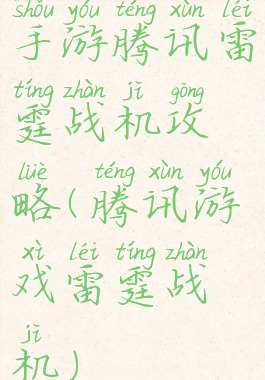 shǒu yóu téng xùn léi
手游腾讯雷
tíng zhàn jī gōng
霆战机攻
lüè téng xùn yóu
略(腾讯游
xì léi tíng zhàn
戏雷霆战
jī
机)